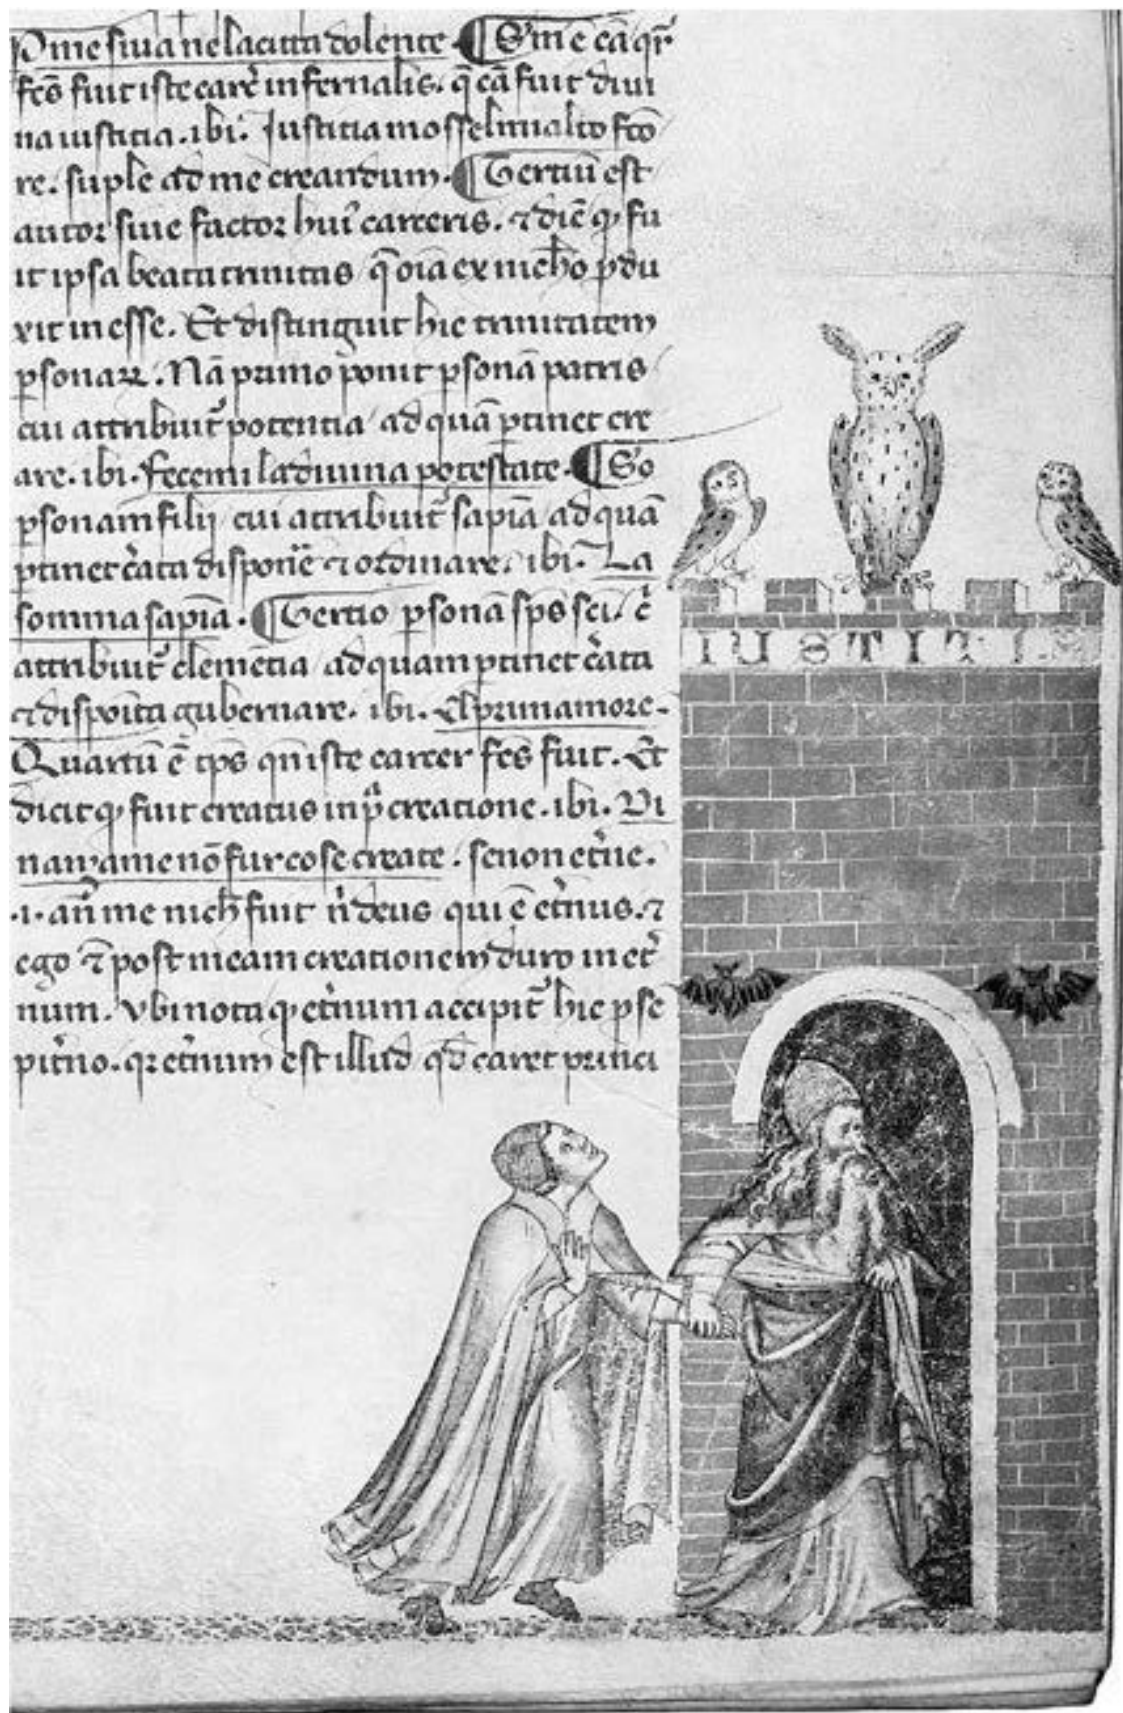 P me si va ne la citta dolente. ¶ Sm̄ ē cā qr̄
fcō fuit iste carc̄ infernalis. q̄ cā fuit divi
na iustitia. ibi. Justitia mosse lmi alto fcō
re. suple ad me creandum. ¶ Tertiū est
autor sive factor huiꝰ carceris. ⁊ dic̄ ꝙ fu
it ipsa beata trinitas q̄ oīa ex nich̄o ꝓdu
xit in esse. Et distinguit hic trinitatem
ꝑsonaꝝ. Nā primo ponit ꝑsonā patris
cui attribuit̄ potentia ad quā ꝑtinet cre
are. ibi. fecemi la divina potestate. ¶ So
ꝑsonam filij cui attribuit̄ sapīa ad quā
ꝑtinet c̄ata disponē ⁊ ordinare. ibi. La
somma sapīa. ¶ Tertio ꝑsonā sp̄s sc̄i. c̄
attribuit̄ clemētia ad quam ꝑtinet c̄ata
⁊ disposita gubernare. ibi. El primamore.
Quartū ē tp̄s qn̄ iste carcer fcs̄ fuit. Et
dicit ꝙ fuit creatus in p̄ creatione. ibi. Di
nançame nō fur cose create. se non et̄ne.
.i. an̄ me nich̄ fuit n̄ deus qui ē et̄nus. ⁊
ego ⁊ post meam creationem duro in et̄
num. Ubi nota ꝙ et̄num accipit̄ hic ꝑ se
pit̄no. qr̄ et̄num est illud qd̄ caret princi
IUSTITIA